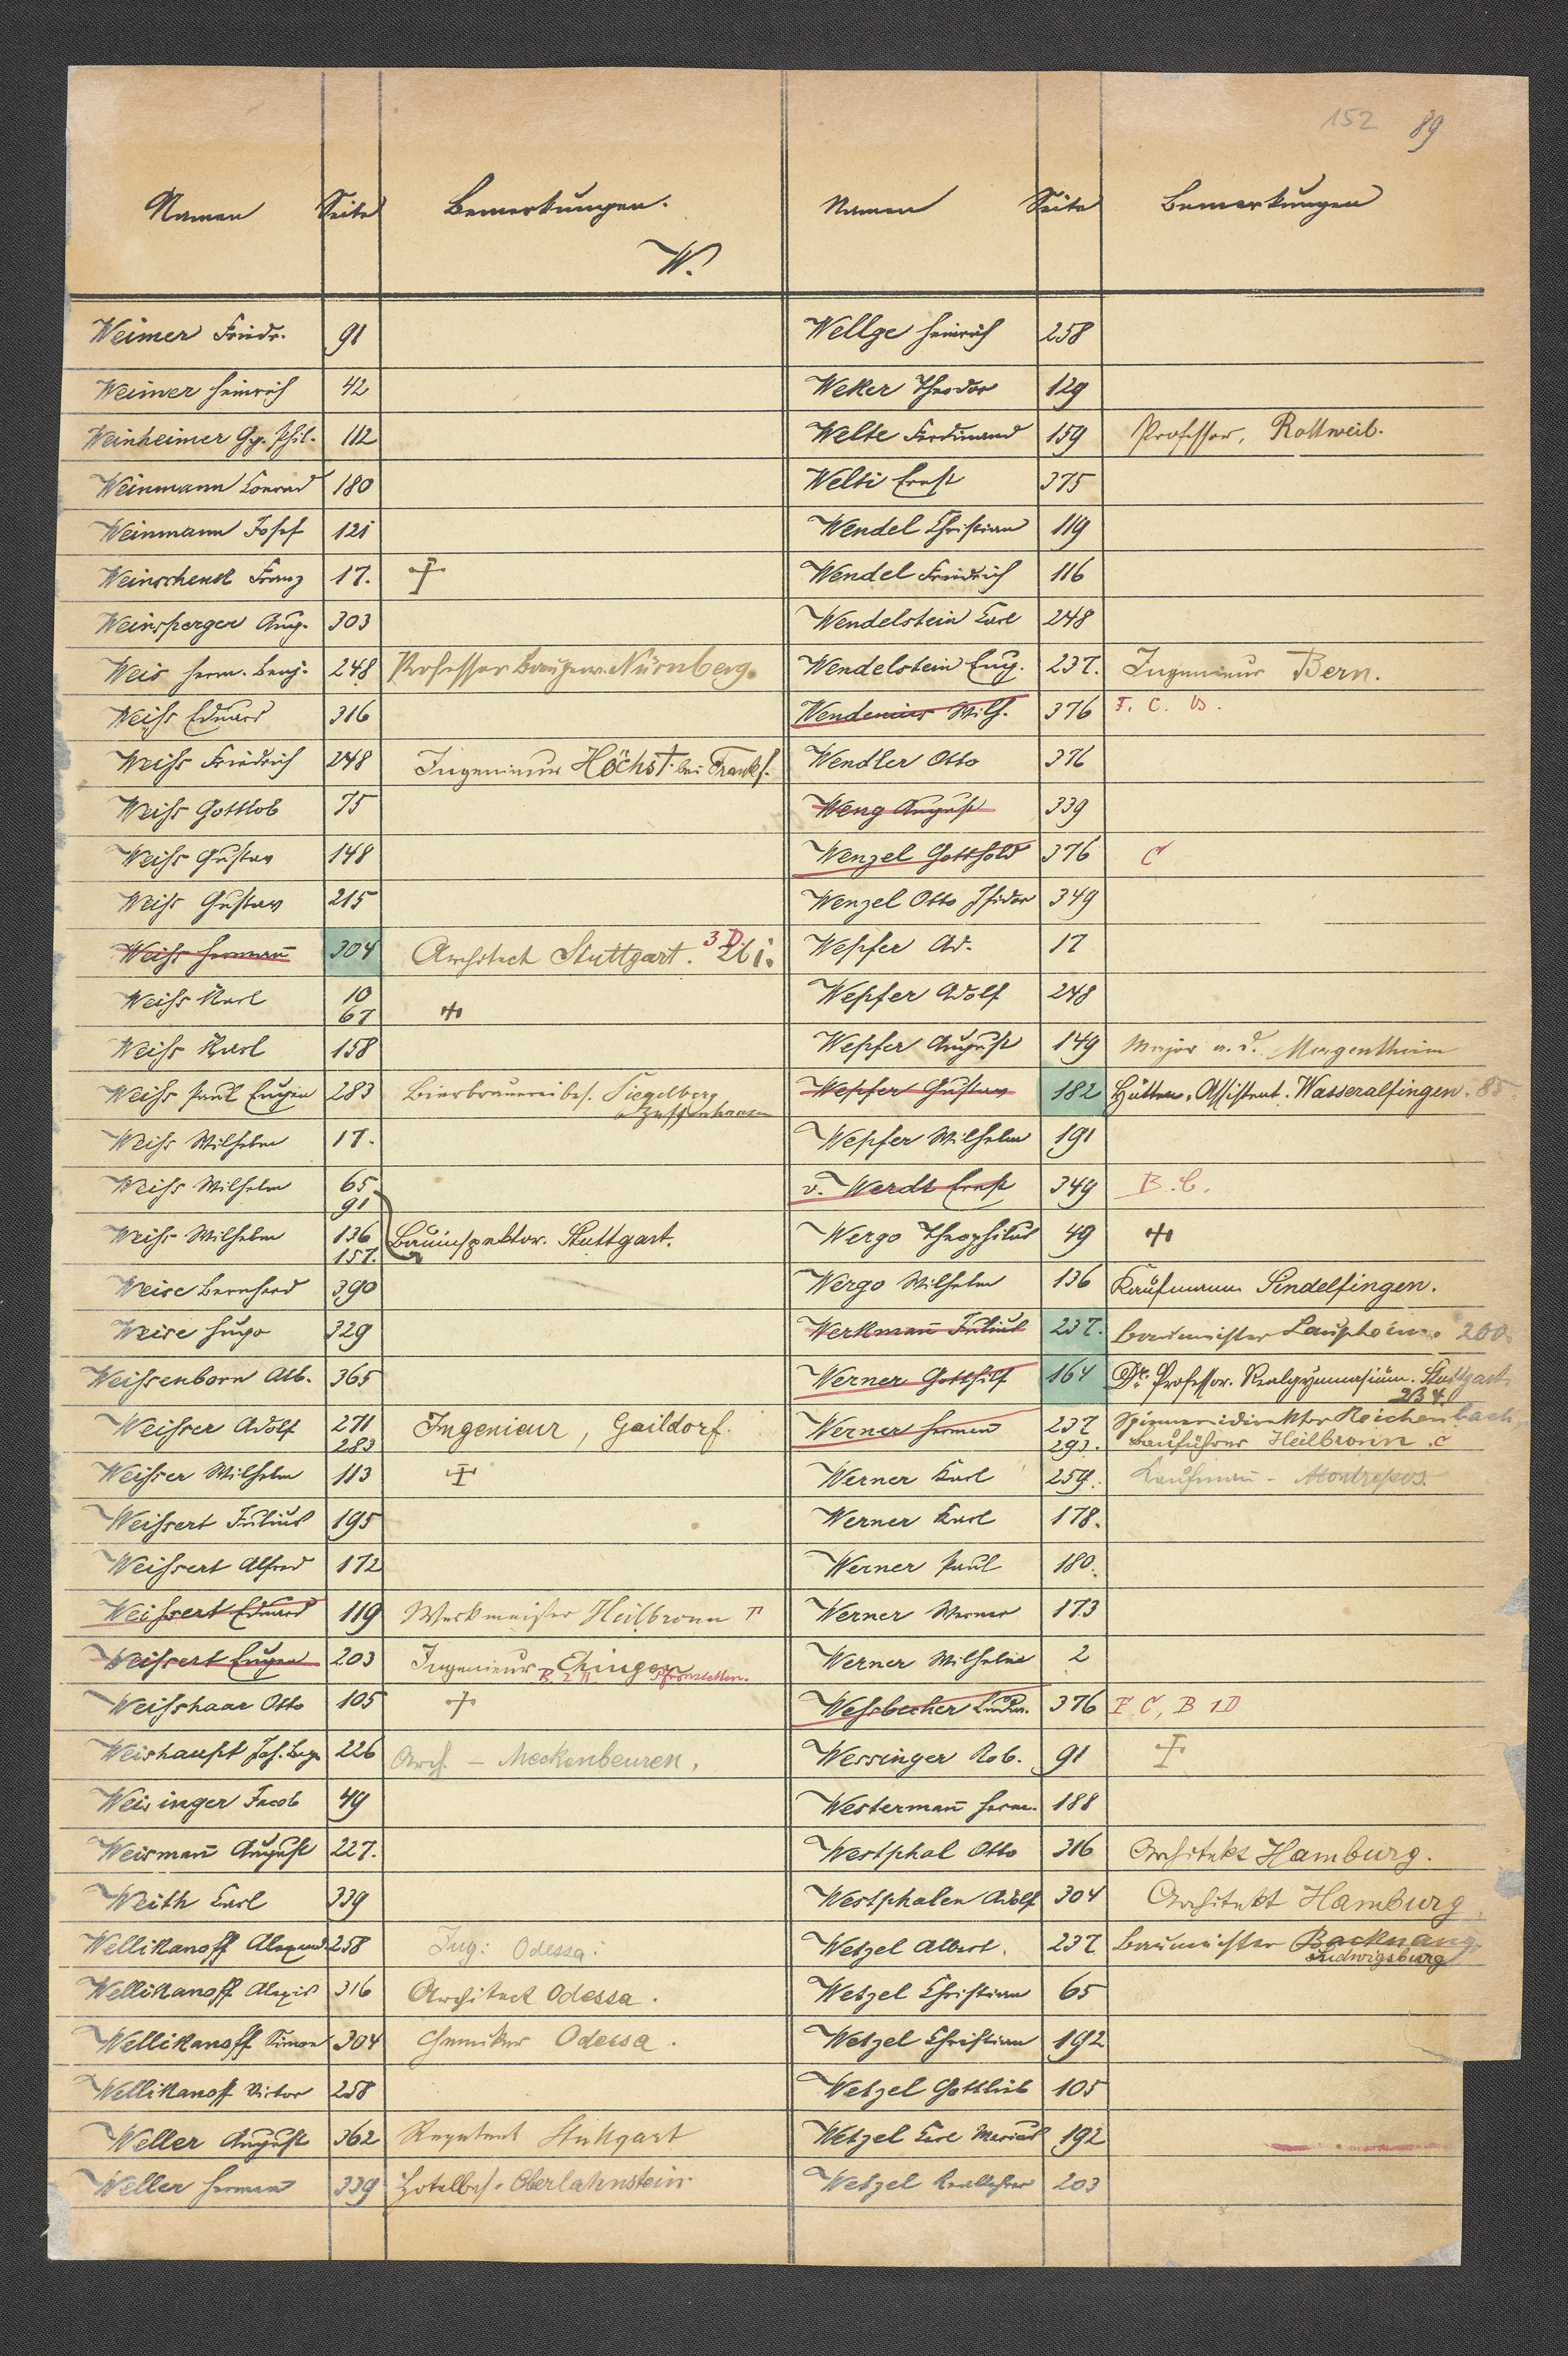 152 89
Namen Seite Bemerkungen. Namen Seite Bemerkungen
W.
Weimer Friedr. 91
Weimer Heinrich 42
Weinheimer Gg. Phil. 112
Weinmann Conrad 180
Weinmann Josef 121
Weinschenk Franz 17. †
Weinsperger Aug. 303
Weis Herm. Benj. 248 Professor Baugew. Nürnberg.
Weiss Eduard 316
Weiss Friedrich 248 Ingenieur Höchst bei Frankf.
Weiss Gottlob 75
Weiss Gustav 148
Weiss Gustav 215
Weiss Hermañ 304 Architect Stuttgart. 3 D. 261.
Weiss Karl 10
67 †
Weiss Karl 158
Weiss Paul Eugen 283 Bierbrauereibes. Siegelberg
Zuffenhausen
Weiss Wilhelm 17.
Weiss Wilhelm 65
91
Weiss Wilhelm 136
157. Bauinspektor. Stuttgart.
Weise Bernhard 390
Weise Hugo 329
Weissenborn Alb. 365
Weisser Adolf 271
283 Ingenieur, Gaildorf.
Weisser Wilhelm 113 †
Weissert Julius 195
Weissert Alfred 172
Weissert Eduard 119 Werkmeister Heilbronn
Weissert Eugen 203 Ingenieur Ehingen
B. 2 Pfronstetten.
Weisshaar Otto 105 †
Weishaupt Joh. Bapt. 226 Arch. – Meckenbeuren.
Weisinger Jacob 49
Weismañ August 227.
Weith Carl 339
Wellikanoff Alexand. 258 Ing: Odessa.
Wellikanoff Alexis 316 Architect Odessa.
Wellikanoff Simon 304 Chemiker Odessa.
Wellikanoff Victor 258
Weller August 362 Repetent Stuttgart
Weller Herman 339 Hotelbes. Oberlahnstein.
Wellge Heinrich 258
Weker Theodor 129
Welte Ferdinand 159 Professor, Rottweil.
Welti Ernst 375
Wendel Christian 119
Wendel Friedrich 116
Wendelstein Carl 248
Wendelstein Eug. 237. Ingenieur Bern.
Wendenius Wilh. 376 F. C. B.
Wendler Otto 376
Weng August 339
Wenzel Gotthold 376 C
Wenzel Otto Isidor 349
Wepfer Ad. 17
Wepfer Adolf 248
Wepfer August 149 Major a. D. Mergentheim
Wepfer Gustav 182 Hütten. Assistent. Wasseralfingen. 85
Wepfer Wilhelm 191
v. Werdt Ernst 349 B. C.
Wergo Theophilus 49 †
Wergo Wilhelm 136 Kaufmann Sindelfingen.
Werkmañ Julius 237. Baumeister Laupheim. 260.
Werner Gotthilf 164 Dr. Professor. Realgymnasium. Stuttgart.
2B4
Werner Herman 237 Spinnereidirektor Reichenbach
293. Bauführer Heilbronn. C
Werner Karl 259. Kaufmañ – Montrepos.
Werner Karl 178.
Werner Paul 180.
Werner Werner 173
Werner Wilhelm 2
Wessbecher Ludw. 376 F C, B 1D
Wessinger Rob. 91 †
Westermañ Herm. 188
Westphal Otto 316 Architekt Hamburg.
Westphalen Adolf 304 Architekt Hamburg.
Wetzel Albert. 237. Baumeister Backnang
Ludwigsburg
Wetzel Christian 65
Wetzel Christian 192
Wetzel Gottlieb 105
Wetzel Carl Marius 192
Wetzel Reallehrer 203